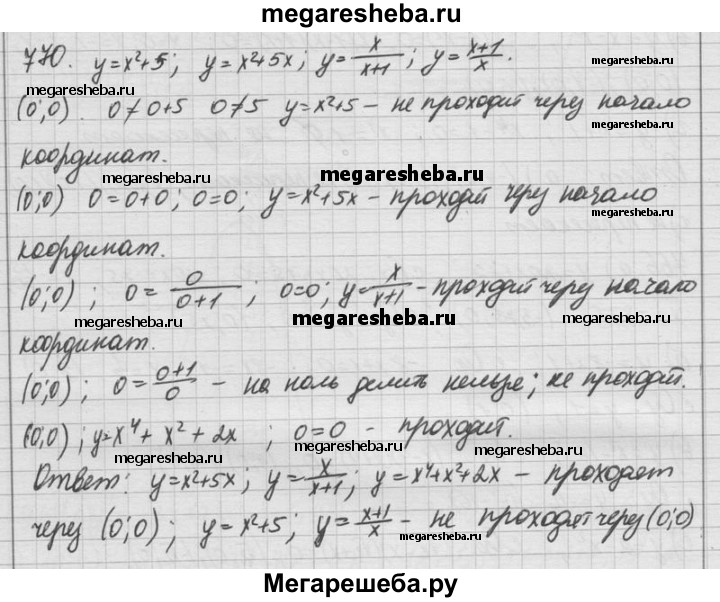 megaresheba.ru
770. y=x²+5; y=x²+5x; y=x/(x+1); y=(x+1)/x.
megaresheba.ru megaresheba.ru
(0;0). 0≠0+5 0≠5 y=x²+5 – не проходит через начало
координат.
megaresheba.ru megaresheba.ru
(0;0) 0=0+0; 0=0; y=x²+5x – проходит через начало
координат.
megaresheba.ru
(0;0); 0=0/(0+1); 0=0; y=x/(x+1) – проходит через начало
megaresheba.ru megaresheba.ru megaresheba.ru
координат.
(0;0); 0=(0+1)/0 – на ноль делить нельзя; не проходит.
megaresheba.ru
(0;0); y=x⁴+x²+2x; 0=0 – проходит.
megaresheba.ru megaresheba.ru
Ответ: y=x²+5x; y=x/(x+1); y=x⁴+x²+2x – проходят
через (0;0); y=x²+5; y=(x+1)/x – не проходят через (0;0)
megaresheba.ru megaresheba.ru
Мегарешеба.ру